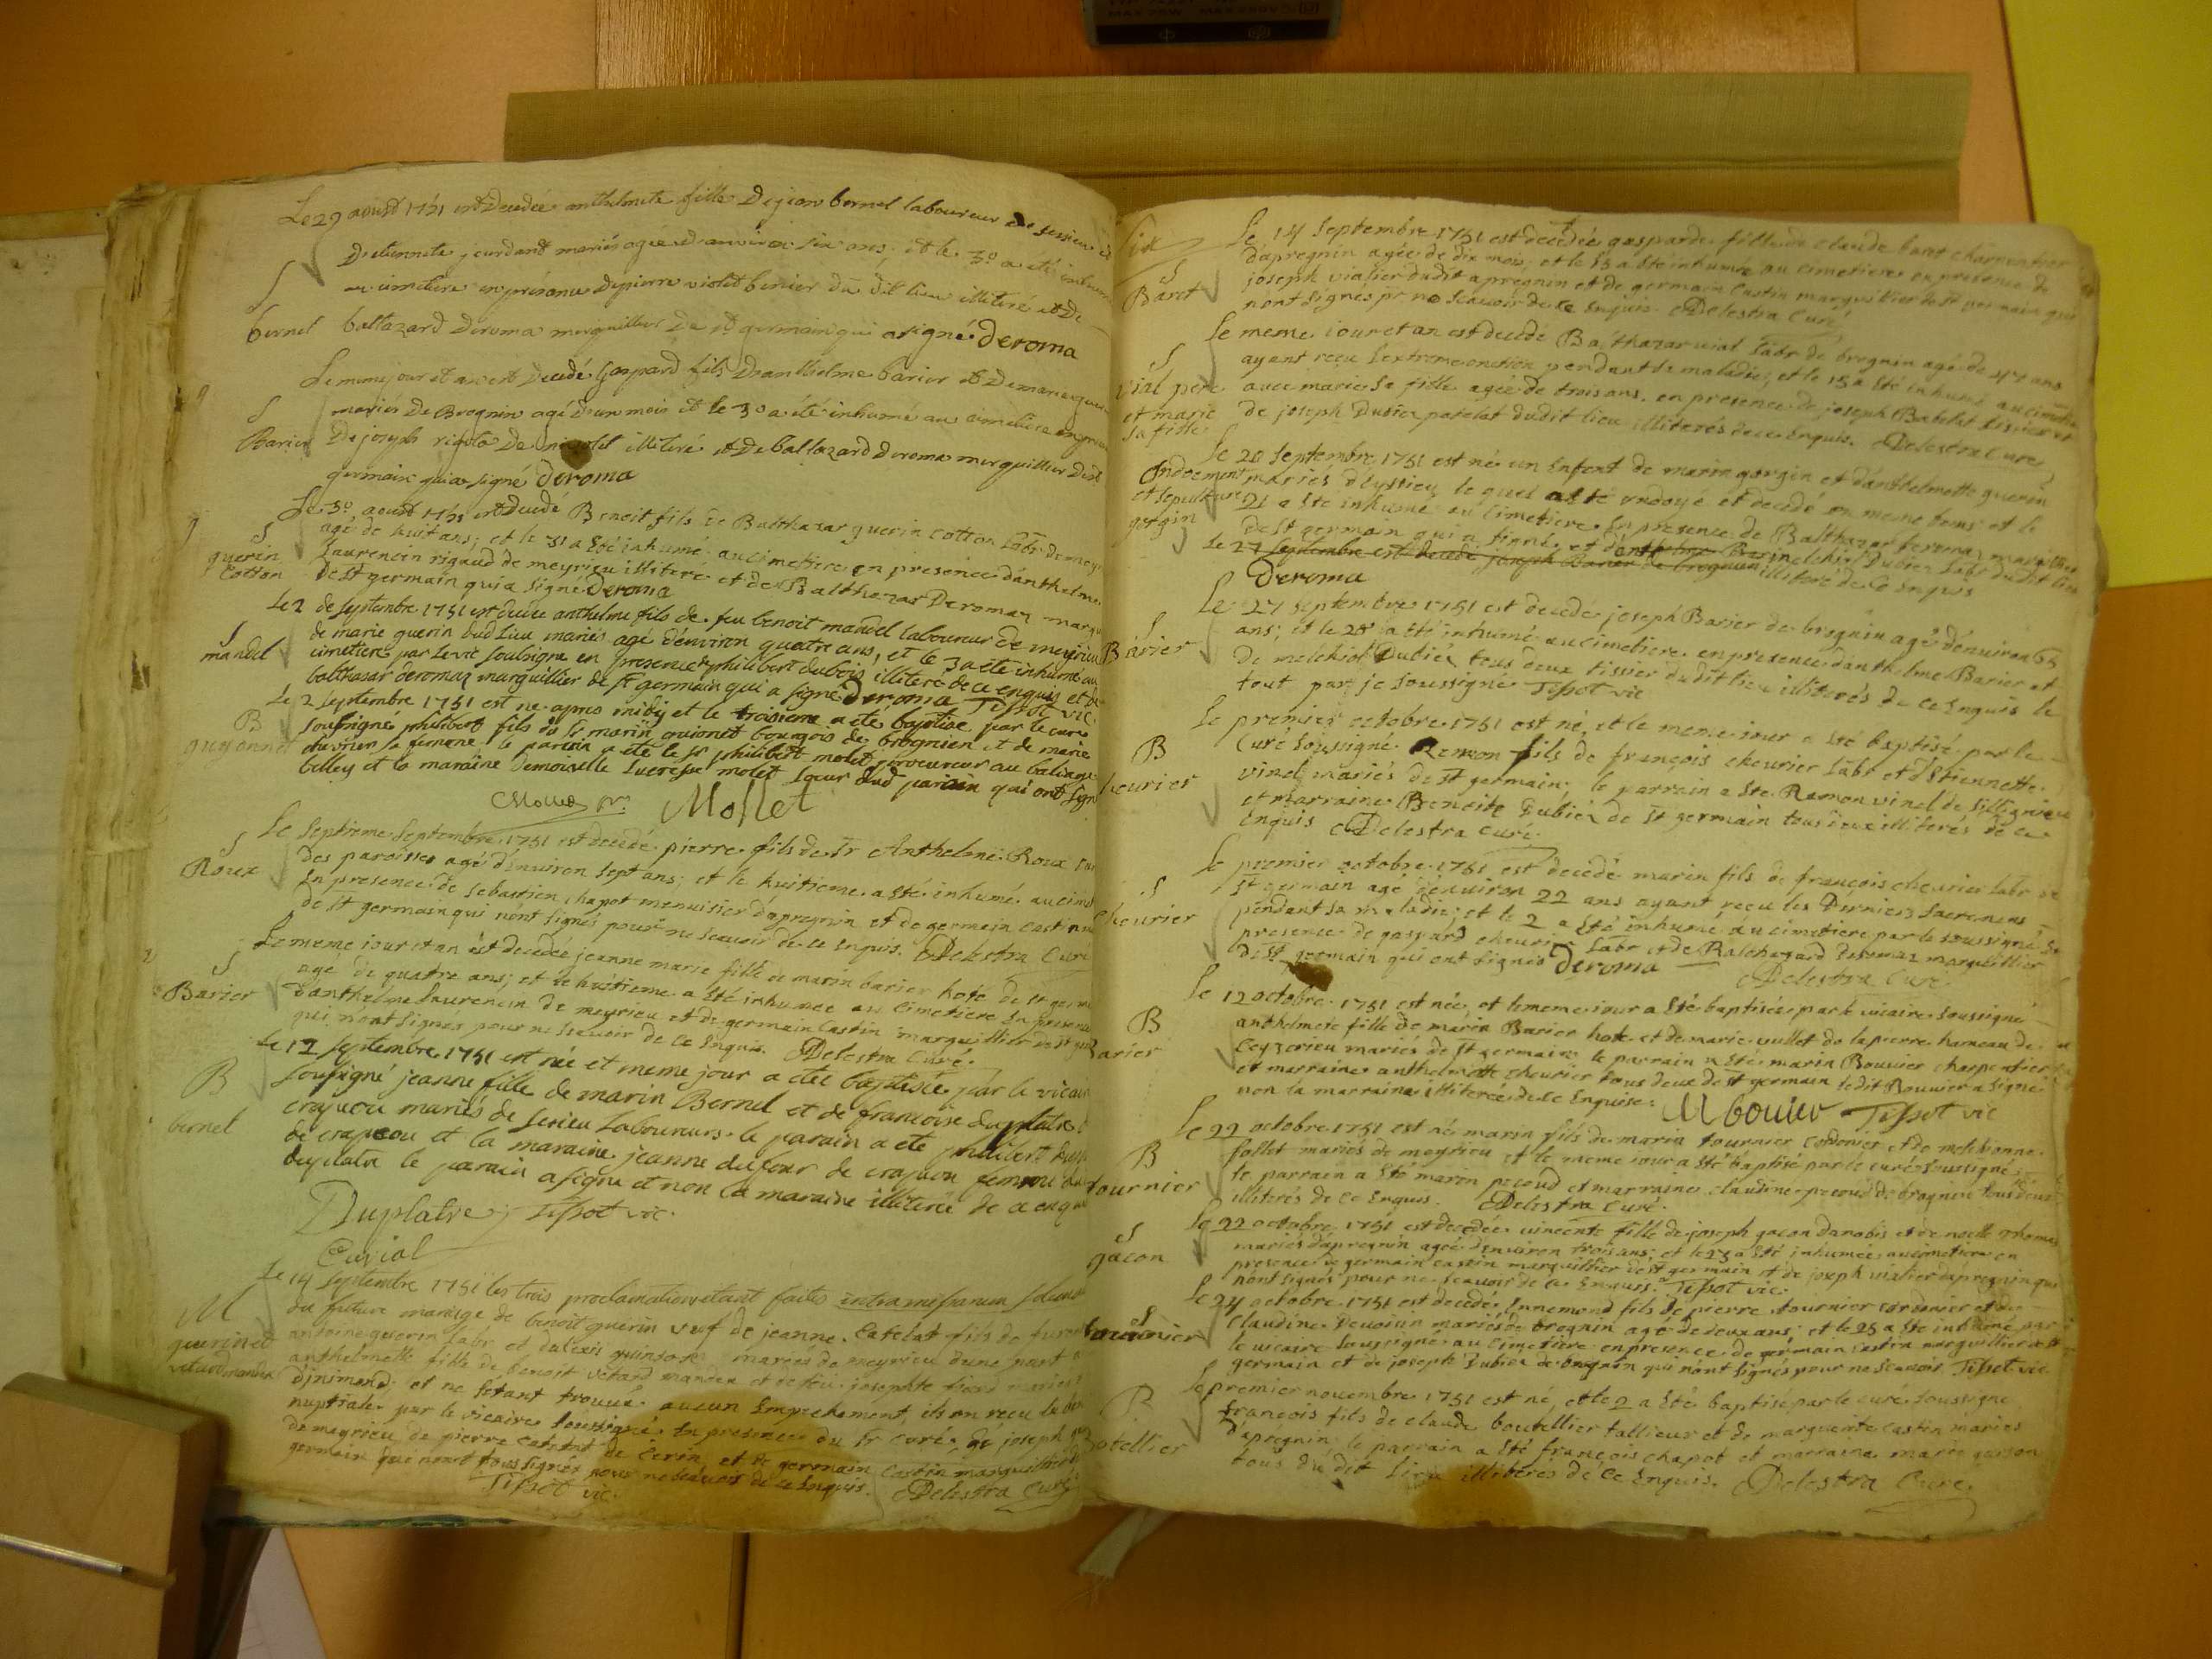 Le 29 aoust 1751 est decedée anthelmete fille De jean bernel laboureur de
D'etiennete jourdant mariés agée d'environ six ans, et le 30 a été
au cimetiere en présence De pierre violet du dit lieu illiteré et De
bernel
baltazard Deroma marguillier De st germain qui a signé Deroma
Le meme jour et an est Decedé Gaspard fils D'anthelme barier et De marie
S
mariés De Brognin agé d'un mois et le 30 a été inhumé au cimetiere
Barier
De joseph illiteré et De baltazard Deroma marguillier
germain qui a signé Deroma
Le 30 aoust 1751 est decedé Benoit fils de Balthazar guerin cotton labr
S
agé de huit ans; et le 31 a été inhumé au cimetiere en presence d'anthelme
guerin
Cotton
Laurencin rigaud de meyrieu illiteré et de Balthazar Deromaz
de st germain qui a signé Deroma
Le 2 de septembre 1751 est decedé anthelme fils de feu benoit mandel laboureur de meyrieu
S
mandel
de marie guerin dud lieu mariés agé d'environ quatre ans, et le 3 a ete inhumé au
cimetiere par le vic soussigné en presence de philibert dubois illiteré de ce enquis et de
balthasar deromaz marguillier de st germain qui a signé Deroma Tissot vic.
Le 2 septembre 1751 est né apres midy et le troisieme a eté baptisé par le curé
B
guyonnet
soussigné philibert fils du sr marin guionet bourgois de brognien et de marie
chevrier sa femme le parein a eté le sr philibert molet procureur au baliage
belley et la maraine Demoiselle Lucresse molet soeur dud parain qui ont
Mollet
Le septieme septembre 1751 est decedé pierre fils de Sr Anthelme Roux
S
Roux
des paroisses agé d'environ sept ans; et le huitieme a été inhumé au
en presence de sebastien chapot menuisier d'apregnin et de germain castin
de st germain qui n'ont signés pour ne scavoir de ce enquis. Delestra Curé
Le meme iour et an est decedée jeanne marie fille de marin barier hote de st
S
Barier
agé de quatre ans; et le huitieme a été inhumée au cimetiere en presence
d'anthelme Laurencin de meyrieu et de germain Castin marguillier de st
qui n'ont signés pour ne scavoir de ce enquis. Delestra Curé.
Le 12 septembre 1751 est née et meme jour a eté baptisée par le
B
soussigné jeanne fille de marin Bernel et de francoise duplatre
bernel
mariés de serieu Laboureurs. le parain a eté philibert
de crapeou et la maraine jeanne dufour de
duplatre le parain a signé et non la maraine illiterée de ce
Duplatre Tissot vic.
Curial
Le 14 septembre 1751 les trois proclamations etant faites
M
du futur mariage de benoit guerin veuf de jeanne Catelat fils de
guerin et
antoine guerin labr et mariés de meyrieu d'une part
anthelmette fille de benoit vetard mandea et de
et ne s'etant trouvé aucun empechement, ils on recu la
nuptiale par le vicaire soussigné en presence du Sr curé, de joseph
de meyrieu de pierre catelat de Cerin et de germain Castin marguillier
germain qui n'ont tous signés pour ne scavoir de ce enquis. Delestra Curé
Tissot vic.
Le 14 septembre 1751 est decedée gasparde fille de claude baret charpentier
S
Baret
d'apregnin agée de dix mois; et le 15 a été inhumée au cimetiere en presence de
joseph vialier dudit apregnin et de germain Castin marguillier de st germain qui
n'ont signés pr ne scavoir de ce enquis. Delestra Curé
Le meme iour et an est decedé Balthazar vial labr de brognin agé de 47 ans
S
ayant reçu l'extreme onction pendant sa maladie; et le 15 a été inhumé au
vial pere
et marie
sa fille
avec marie sa fille agée de trois ans, en presence de joseph Babelat tissier et
de joseph Dubiez patelat dudit lieu illiterés de ce enquis. Delestra Curé
Le 20 septembre 1751 est né un enfant de marin gorgin et d'anthelmette guerin
Ondoement
et sepulture
gorgin
mariés d'Eyssieu, le quel a été ondoyé et decedé en meme tems et le
21 a été inhumé au cimetiere en presence de Balthazar Deromaz marguillier
de st germain qui a signé et de melchiol Dubiez labr dudit lieu
Le 27 septembre est decedé joseph Barier de brognin illiteré de ce enquis
Deroma
Le 27 septembre 1751 est decedé joseph Barier de brognin agé d'environ 65
S
Barier
ans; et le 28 a été inhumé au cimetiere en presence d'anthelme Barier et
de melchiol Dubiez tous deux tissier dudit lieu illiterés de ce enquis le
tout par je soussigné Tissot vic
Le premier octobre 1751 est né, et le meme iour a été baptisé par le
B
cheurier
Curé soussigné Remon fils de françois cheurier labr et d'Etiennette
vinel mariés de st germain; le parrain a été Ramon vinel de
et marraine Benoite Dubiez de st germain tous deux illiterés de ce
enquis Delestra Curé.
Le premier octobre 1751 est decedé marin fils de françois cheurier labr de
S
cheurier
st germain agé d'environ 22 ans ayant reçu les Derniers sacremens
pendant sa maladie; et le 2 a été inhumé au cimetiere par le soussigné en
presence de gaspard cheurier labr et de Balthazard Deromaz marguillier
de st germain qui ont signés Deroma
Delestra Curé.
Le 12 octobre 1751 est née, et le meme iour a été baptisée par le vicaire soussigné
B
Barier
anthelmete fille de marin Barier hote et de marie vullet de la pierre hameau de
Ceyzerieu mariés de st germain; le parrain a été marin Bouvier charpentier
et marraine anthelmette cheurier tous deux de st germain ledit Bouvier a signé
non la marraine illiterée de ce enquise. M bouvier Tissot vic
Le 22 octobre 1751 est né marin fils de marin tournier cordonier et de melchionne
B
tournier
follet mariés de meyrieu et le meme iour a été baptisé par le curé soussigné;
le parrain a été marin pecoud et marraine claudine pecoud de brognin tous deux
illiterés de ce enquis. Delestra Curé.
Le 22 octobre 1751 est decedée vincente fille de joseph gacon danobis et de noelle thomas
S
gacon
mariés d'apregnin agée d'environ trois ans; et le 23 a été inhumée au cimetiere en
presence de germain castin marguillier de st germain et de joseph vialier d'apregnin qui
n'ont signés pour ne scavoir de ce enquis. Tissot vic.
Le 24 octobre 1751 est decedé Ennemond fils de pierre tournier cordonier et de
S
tournier
claudine mariés de brognin agé de deux ans; et le 25 a été inhumé par
le vicaire soussigné au cimetiere en presence de germain castin marguillier de st
germain et de joseph Dubiez de brognin qui n'ont signés pour ne scavoir Tissot vic
Le premier novembre 1751 est né, et le 2 a été baptisé par le curé soussigné
B
botellier
françois fils de claude boutellier tallieur et de marguerite castin mariés
d'apregnin; le parrain a été françois chapot et marraine marie
tous du dit lieu illiterés de ce enquis. Delestra Curé.